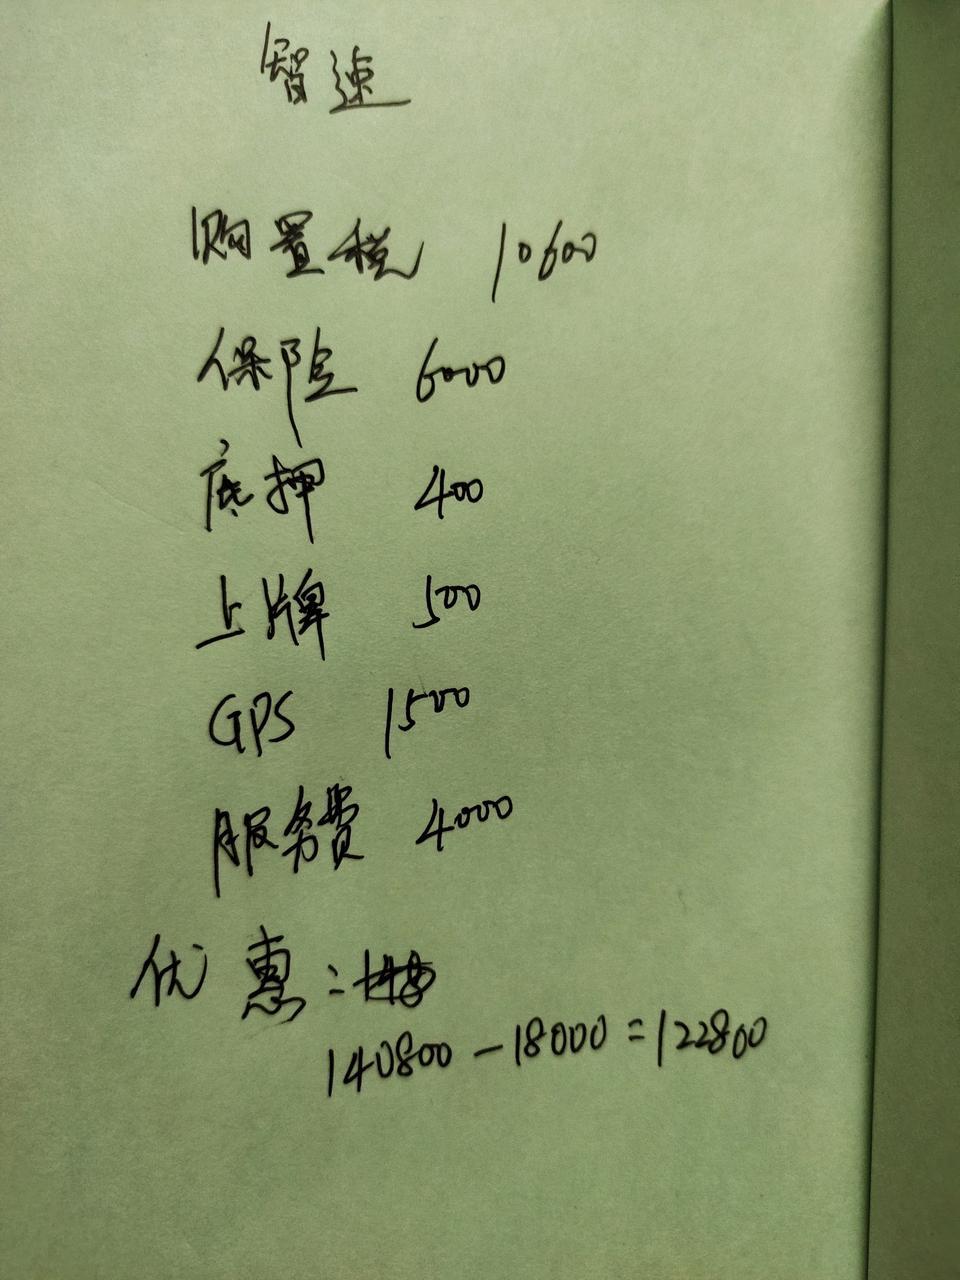 智速
购置税 10600
保险 6000
底押 400
上牌 500
GPS 1500
服务费 4000
优惠:
140800-18000=122800